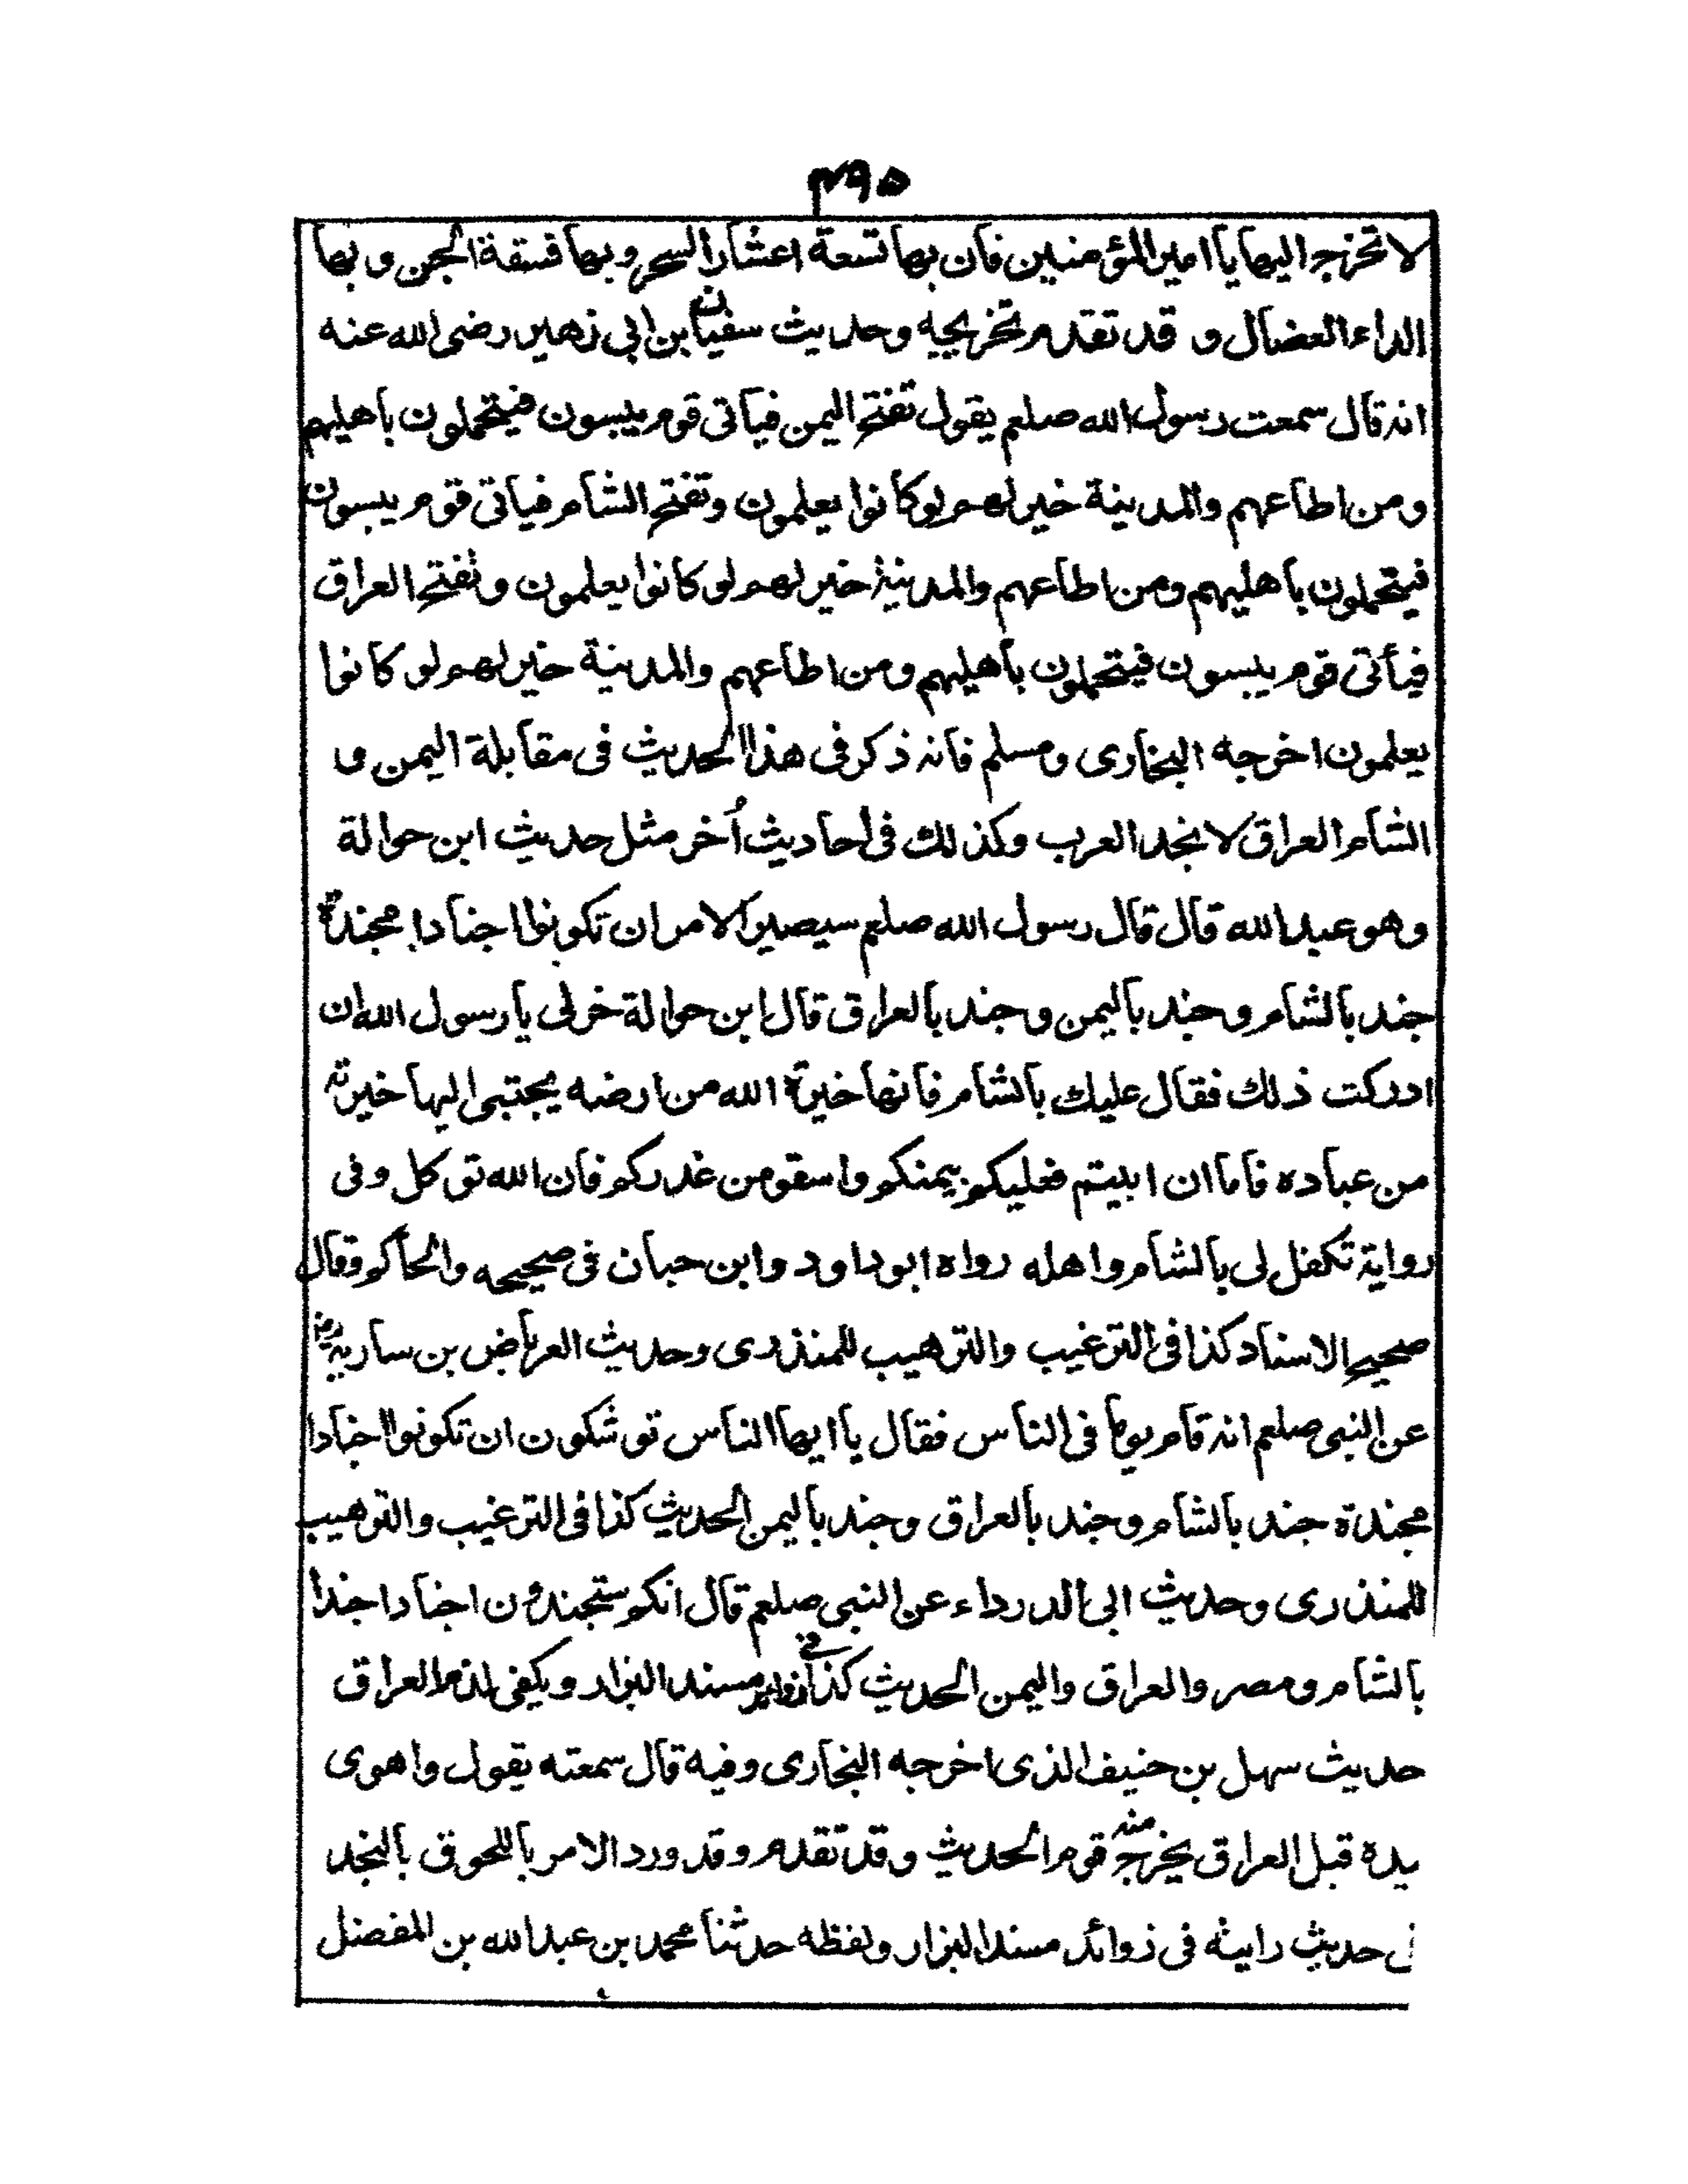 ۴۹۵
لا تخرج اليها يا امير المؤمنين فان بها تسعة اعشار السحر وبها فسقة الجن و بها
الداء العضال و قد تقدم تخريجه وحديث سفيان بن ابي زهير رضى الله عنه
انه قال سمعت رسول الله صلعم يقول تفتح اليمن فيأتى قوم يبسون فيتحملون باهليهم
ومن اطاعهم والمدينة خير لهم لو كانوا يعلمون وتفتح الشام فيأتى قوم يبسون
فيتحملون باهليهم ومن اطاعهم والمدينة خير لهم لو كانوا يعلمون وتفتح العراق
فيأتى قوم يبسون فيتحملون باهليهم ومن اطاعهم والمدينة خير لهم لو كانوا
يعلمون اخرجه البخارى ومسلم فانه ذكر فى هذا الحديث فى مقابلة اليمن و
الشام العراق لا نجد العرب وكذلك فى احاديث أخر مثل حديث ابن حوالة
وهو عبد الله قال قال رسول الله صلعم سيصير الامر ان تكونوا اجنادا مجندة
جند بالشام وجند باليمن وجند بالعراق قال ابن حوالة خرلى يا رسول الله ان
ادركت ذلك فقال عليك بالشام فانها خيرة الله من ارضه يجتبى اليها خيرته
من عباده فاما ان ابيتم فعليكم بيمنكم واسقو من غدركم فان الله توكل وفى
رواية تكفل لى بالشام واهله رواه ابو داود وابن حبان فى صحيحه والحاكم وقال
صحيح الاسناد كذا فى الترغيب والترهيب للمنذرى وحديث العرباض بن سارية رض
عن النبى صلعم انه قام يوما فى الناس فقال يا ايها الناس توشكون ان تكونوا اجنادا
مجندة جند بالشام وجند بالعراق وجند باليمن الحديث كذا فى الترغيب والترهيب
للمنذرى وحديث ابى الدرداء عن النبى صلعم قال انكم ستجندون اجنادا جندا
بالشام ومصر والعراق واليمن الحديث كذا فى زوائد مسند البزار ويكفى لذم العراق
حديث سهل بن حنيف الذى اخرجه البخارى وفيه قال سمعته يقول واهوى
بيده قبل العراق يخرج منه قوم الحديث وقد تقدم وقد ورد الامر باللحوق بالنجد
فى حديث رايته فى زوائد مسند البزار ولفظه حدثنا محمد بن عبد الله بن المفضل